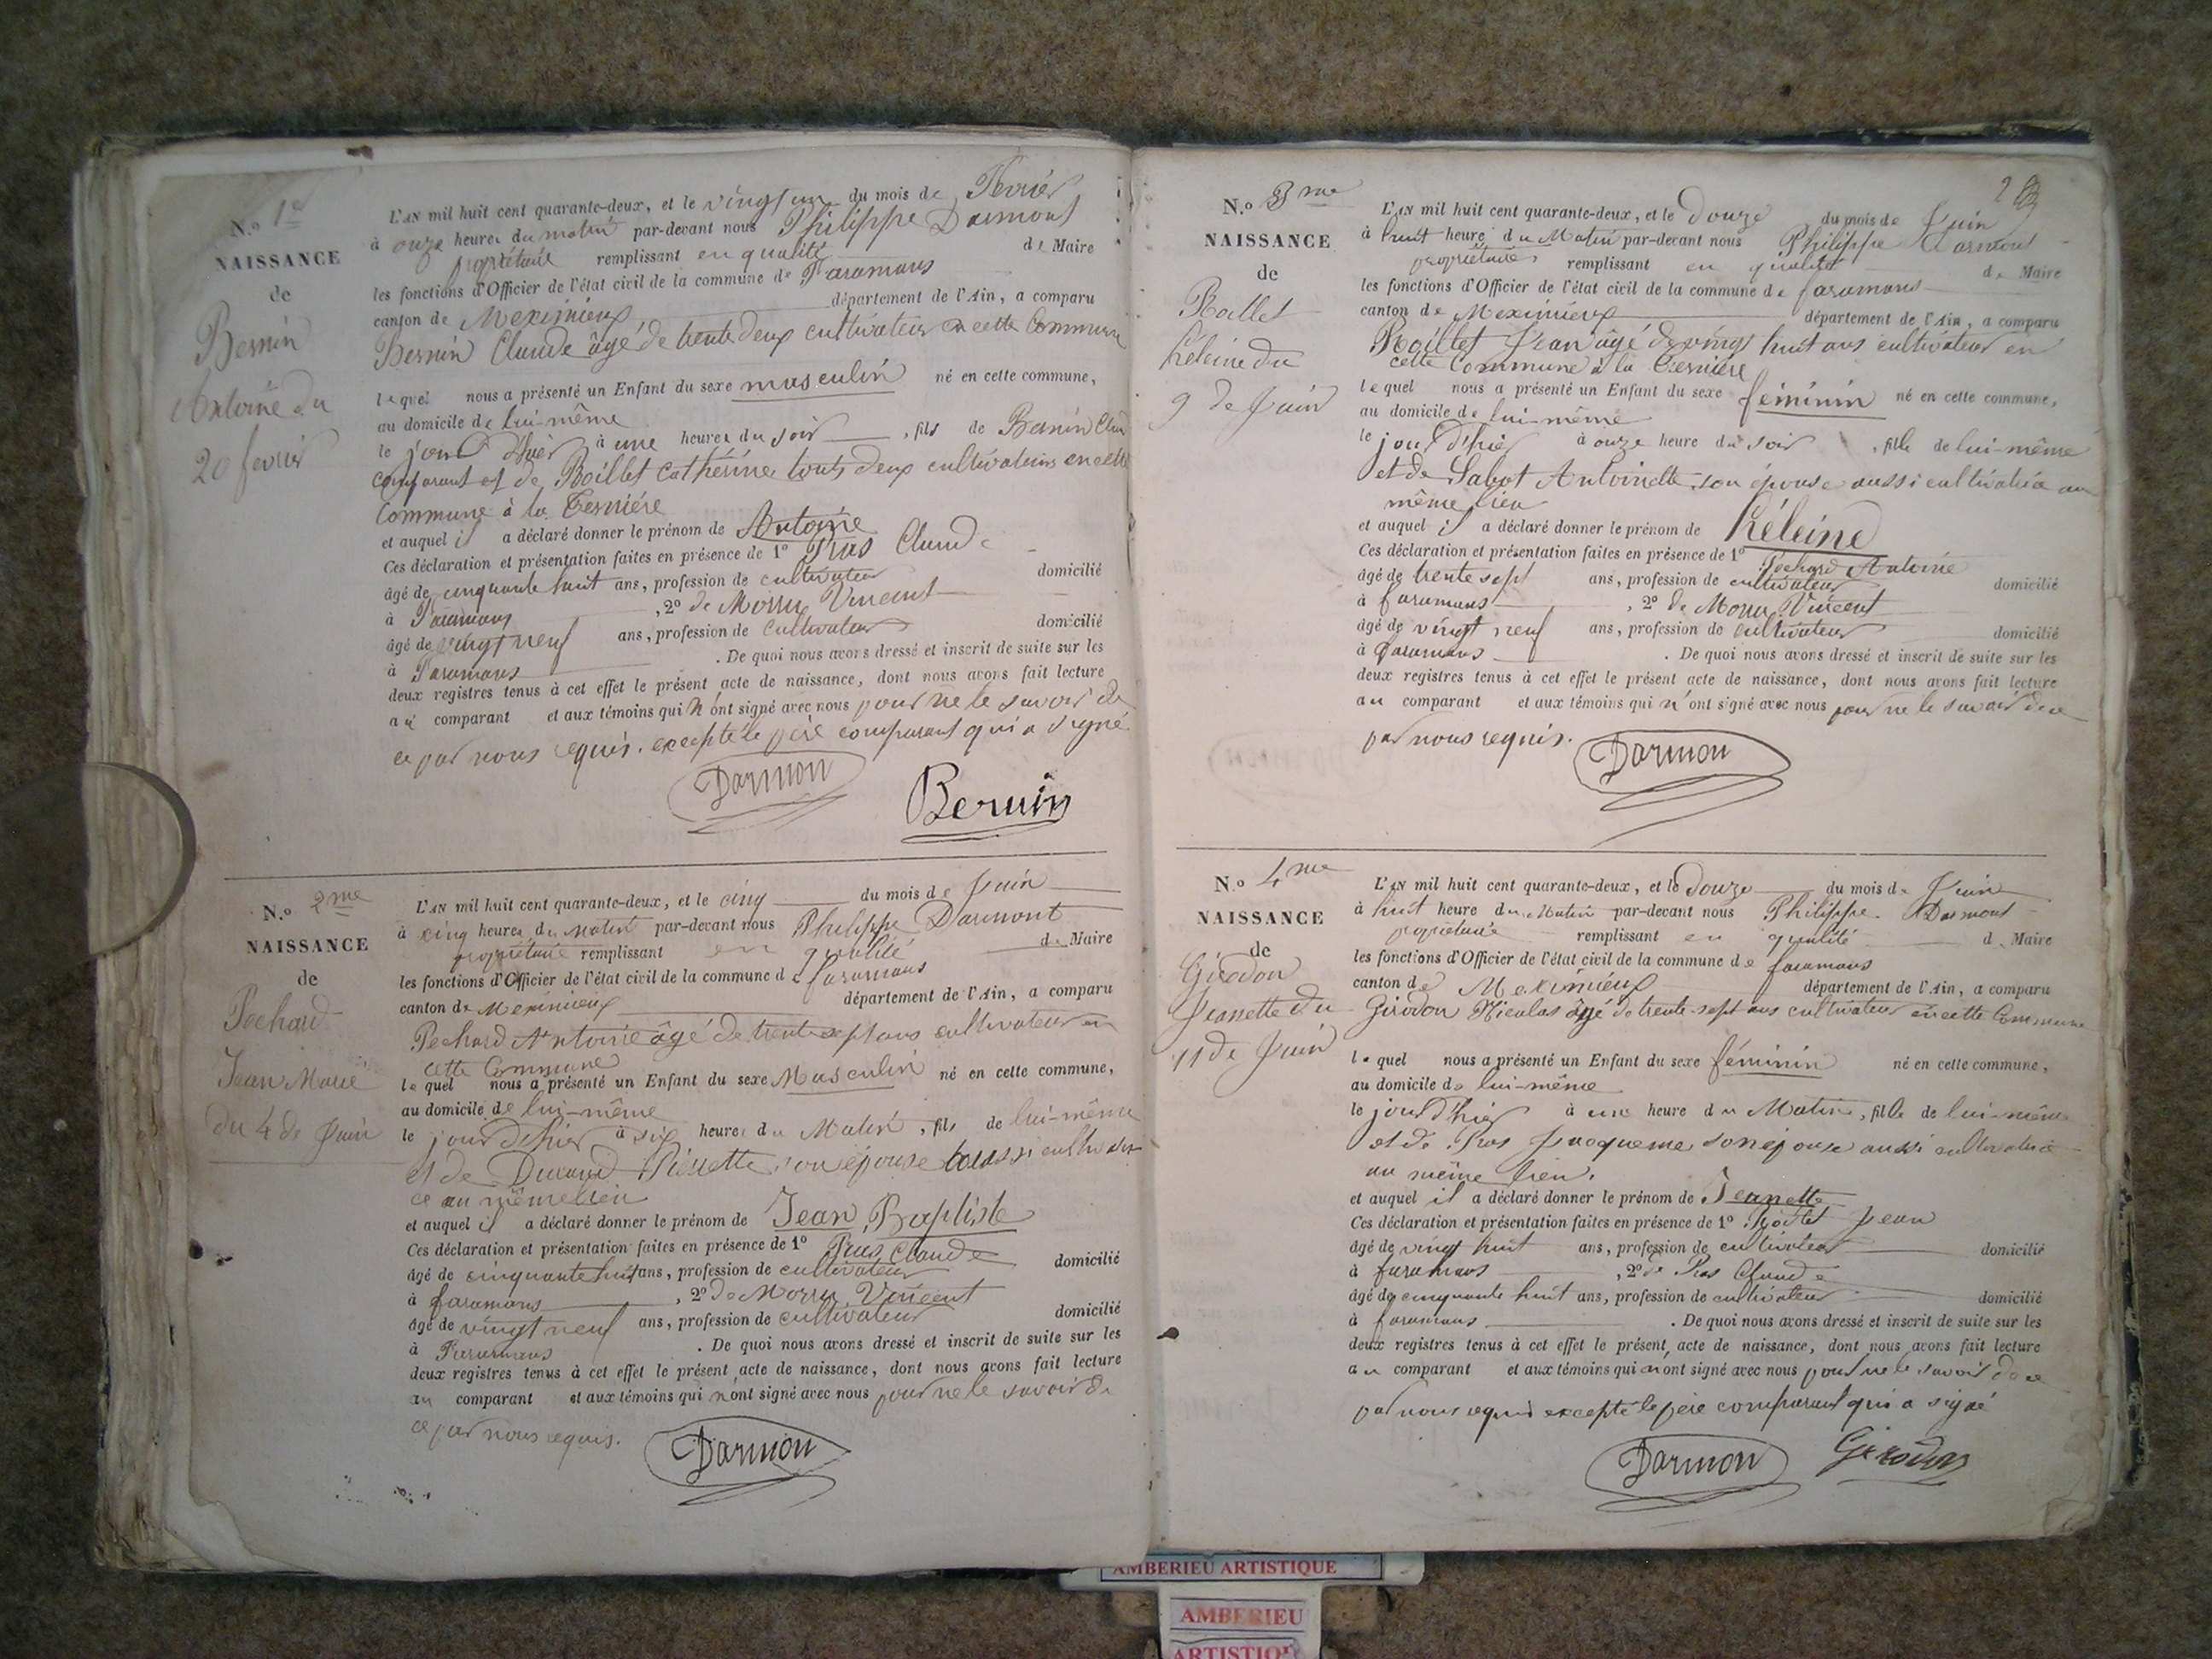 N.o 1er
NAISSANCE
de
Bernin
Antoine du
20 fevrier
L'AN mil huit cent quarante-deux, et le vingt un du mois de Fevrier
à onze heures du matin par-devant nous Philippe Darmont
propriétaire remplissant en qualité de Maire
les fonctions d'Officier de l'état civil de la commune de Faramans
canton de Meximieux département de l'Ain, a comparu
Bernin Claude âgé de trente deux cultivateur en cette Commune
lequel nous a présenté un Enfant du sexe masculin né en cette commune,
au domicile de lui-même
le jour d'hier à une heure du soir, fils de Bernin Claude
comparant et de Roillet Catherine touts deux cultivateurs en cette
Commune à la
et auquel il a déclaré donner le prénom de Antoine
Ces déclaration et présentation faites en présence de 1° Pras Claude
âgé de cinquante huit ans, profession de cultivateur domicilié
à Faramans, 2° de Morru Vincent
âgé de vingt neuf ans, profession de cultivateur domicilié
à Faramans. De quoi nous avons dressé et inscrit de suite sur les
deux registres tenus à cet effet le présent acte de naissance, dont nous avons fait lecture
au comparant et aux témoins qui n'ont signé avec nous pour ne le savoir de
ce par nous requis. excepté le père comparant qui a signé
Darmon
Bernin
N.o 2me
NAISSANCE
de
Pechard
Jean Marie
du 4 de Juin
L'AN mil huit cent quarante-deux, et le cinq du mois de Juin
à cinq heures du matin par-devant nous Philippe Darmont
propriétaire remplissant en qualité de Maire
les fonctions d'Officier de l'état civil de la commune de faramans
canton de Meximieux département de l'Ain, a comparu
Pechard Antoine âgé de trente sept ans cultivateur en
cette Commune
lequel nous a présenté un Enfant du sexe Masculin né en cette commune,
au domicile de lui-même
le jour d'hier à six heures du Matin, fils de lui-même
et de Durand Pierrette son épouse aussi cultivatri
ce au même lieu
et auquel il a déclaré donner le prénom de Jean Baptiste
Ces déclaration et présentation faites en présence de 1° Pras Claude
âgé de cinquante huit ans, profession de cultivateur domicilié
à faramans, 2° de Morru Vincent
âgé de vingt neuf ans, profession de cultivateur domicilié
à Faramans. De quoi nous avons dressé et inscrit de suite sur les
deux registres tenus à cet effet le présent acte de naissance, dont nous avons fait lecture
au comparant et aux témoins qui n'ont signé avec nous pour ne le savoir de
ce par nous requis.
Darmon
2
N.o 3me
NAISSANCE
de
Roillet
héleine du
9 de Juin
L'AN mil huit cent quarante-deux, et le douze du mois de Juin
à huit heure du Matin par-devant nous Philippe Darmont
propriétaire remplissant en qualité de Maire
les fonctions d'Officier de l'état civil de la commune de faramans
canton de Meximieux département de l'Ain, a comparu
Roillet Jean âgé de vingt huit ans cultivateur en
cette Commune à la
lequel nous a présenté un Enfant du sexe féminin né en cette commune,
au domicile de lui-même
le jour d'hier à onze heure du soir, fille de lui-même
et de Sabot Antoinette son épouse aussi cultivatrice au
même lieu
et auquel il a déclaré donner le prénom de héleine
Ces déclaration et présentation faites en présence de 1° Pechard Antoine
âgé de trente sept ans, profession de cultivateur domicilié
à faramans, 2° de Morru Vincent
âgé de vingt neuf ans, profession de cultivateur domicilié
à Faramans. De quoi nous avons dressé et inscrit de suite sur les
deux registres tenus à cet effet le présent acte de naissance, dont nous avons fait lecture
au comparant et aux témoins qui n'ont signé avec nous pour ne le savoir de ce
par nous requis.
Darmon
N.o 4me
NAISSANCE
de
Girodon
Jeanette du
11 de Juin
L'AN mil huit cent quarante-deux, et le douze du mois de Juin
à huit heure du Matin par-devant nous Philippe Darmont
propriétaire remplissant en qualité de Maire
les fonctions d'Officier de l'état civil de la commune de faramans
canton de Meximieux département de l'Ain, a comparu
Girodon Nicolas âgé de trente-sept ans cultivateur en cette Commune
lequel nous a présenté un Enfant du sexe féminin né en cette commune,
au domicile de lui-même
le jour d'hier à une heure du Matin, fille de lui-même
et de Pras son épouse aussi cultivatrice
au même lieu.
et auquel il a déclaré donner le prénom de Jeanette
Ces déclaration et présentation faites en présence de 1° Roillet Jean
âgé de vingt huit ans, profession de cultivateur domicilié
à faramans, 2° de Pras Claude
âgé de cinquante huit ans, profession de cultivateur domicilié
à faramans. De quoi nous avons dressé et inscrit de suite sur les
deux registres tenus à cet effet le présent acte de naissance, dont nous avons fait lecture
au comparant et aux témoins qui n'ont signé avec nous pour ne le savoir de ce
par nous requis excepté le père comparant qui a signé
Darmon
Girodon
AMBERIEU ARTISTIQUE
AMBERIEU
ARTISTIQUE